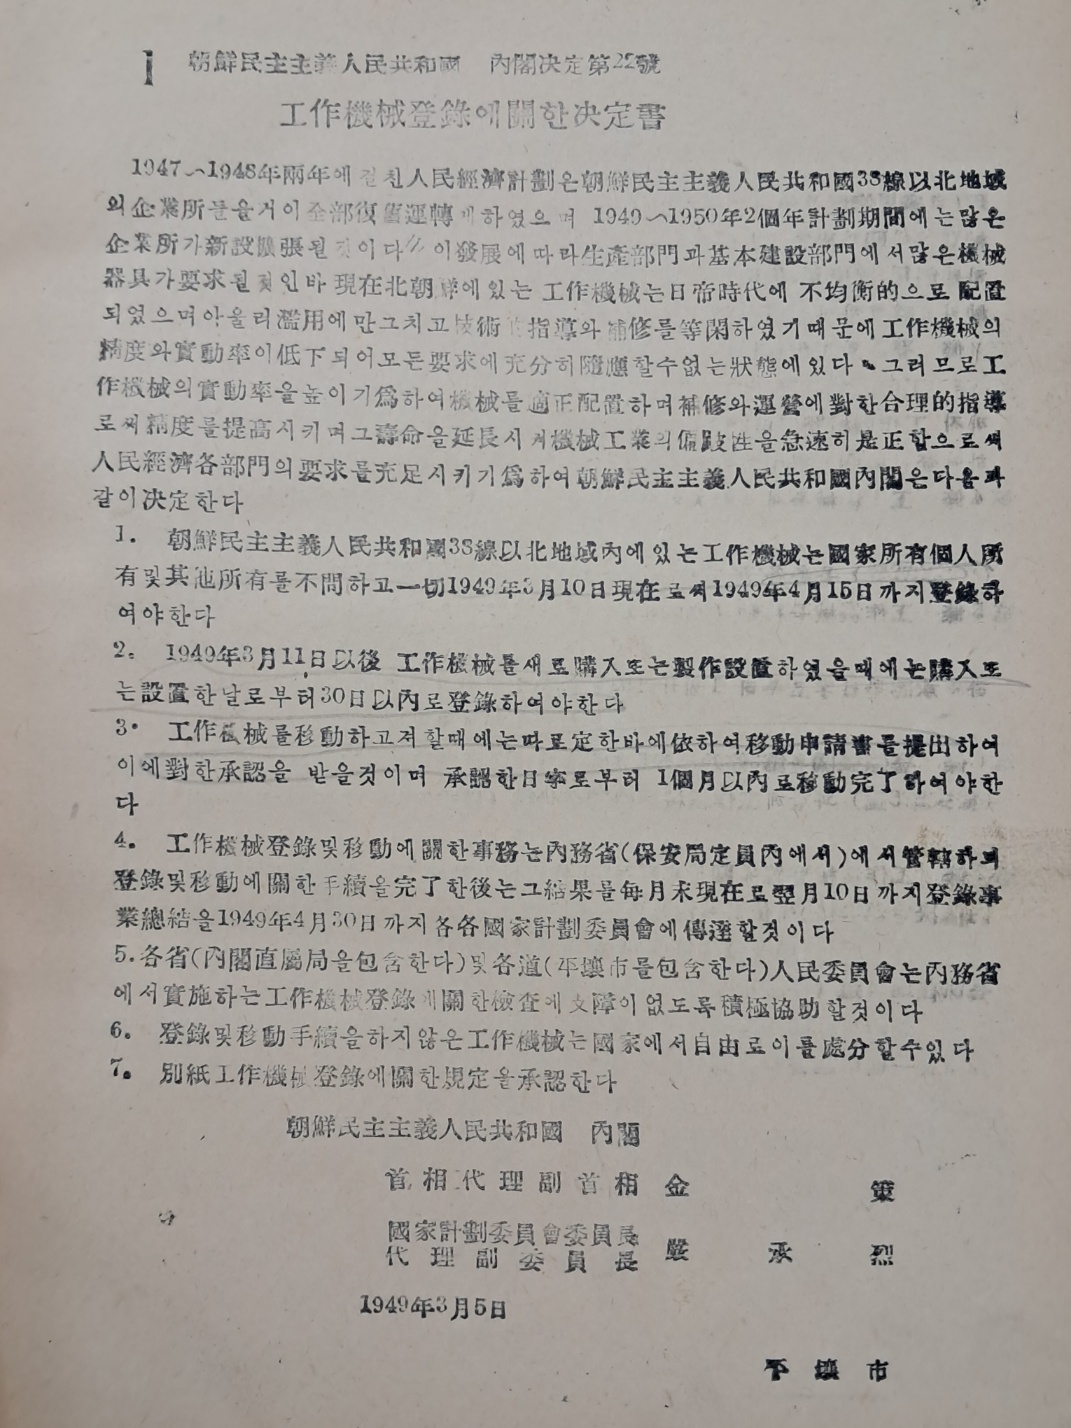 1 朝鮮民主主義人民共和國 內閣决定第22號
工作機械登錄에關한决定書
1947~1948年兩年에걸친人民經濟計劃은朝鮮民主主義人民共和國38線以北地域
의企業所들을거이全部復舊運轉케하였으며 1949~1950年2個年計劃期間에는많은
企業所가新設擴張될것이다 이發展에따라生產部門과基本建設部門에서많은機械
器具가要求될것인바 現在北朝鮮에있는 工作機械는日帝時代에 不均衡的으로 配置
되였으며아울러濫用에만그치고技術的指導와補修를等閑하였기때문에工作機械의
精度와實動率이低下되어모든要求에充分히隨應할수없는狀態에있다. 그러므로工
作機械의實動率을높이기爲하여機械를適正配置하며補修와運營에對한合理的指導
로써精度를提高시키며그壽命을延長시켜機械工業의偏跛性을急速히是正함으로써
人民經濟各部門의要求를充足시키기爲하여朝鮮民主主義人民共和國內閣은다음과
같이决定한다
1. 朝鮮民主主義人民共和國38線以北地域內에있는工作機械는國家所有個人所
有및其他所有를不問하고一切1949年3月10日現在로써1949年4月15日까지登錄하
여야한다
2. 1949年3月11日以後 工作機械를새로購入또는製作設置하였을때에는購入또
는設置한날로부터30日以內로登錄하여야한다
3. 工作機械를移動하고저할때에는따로定한바에依하여移動申請書를提出하여
이에對한承認을 받을것이며 承認한日字로부터 1個月以內로移動完了하여야한
다
4. 工作機械登錄및移動에關한事務는內務省(保安局定員內에서)에서管轄하며
登錄및移動에關한手續을完了한後는그結果를每月末現在로翌月10日까지登錄事
業總結을1949年4月30日까지各各國家計劃委員會에傳達할것이다
5.各省(內閣直屬局을包含한다)및各道(平壤市를包含한다)人民委員會는內務省
에서實施하는工作機械登錄에關한檢查에支障이없도록積極協助할것이다
6. 登錄및移動手續을하지않은工作機械는國家에서自由로이를處分할수있다
7. 別紙工作機械登錄에關한規定을承認한다
朝鮮民主主義人民共和國 內閣
首相代理副首相 金 策
國家計劃委員會委員長
代理副委員長 嚴承烈
1949年3月5日
平壤市